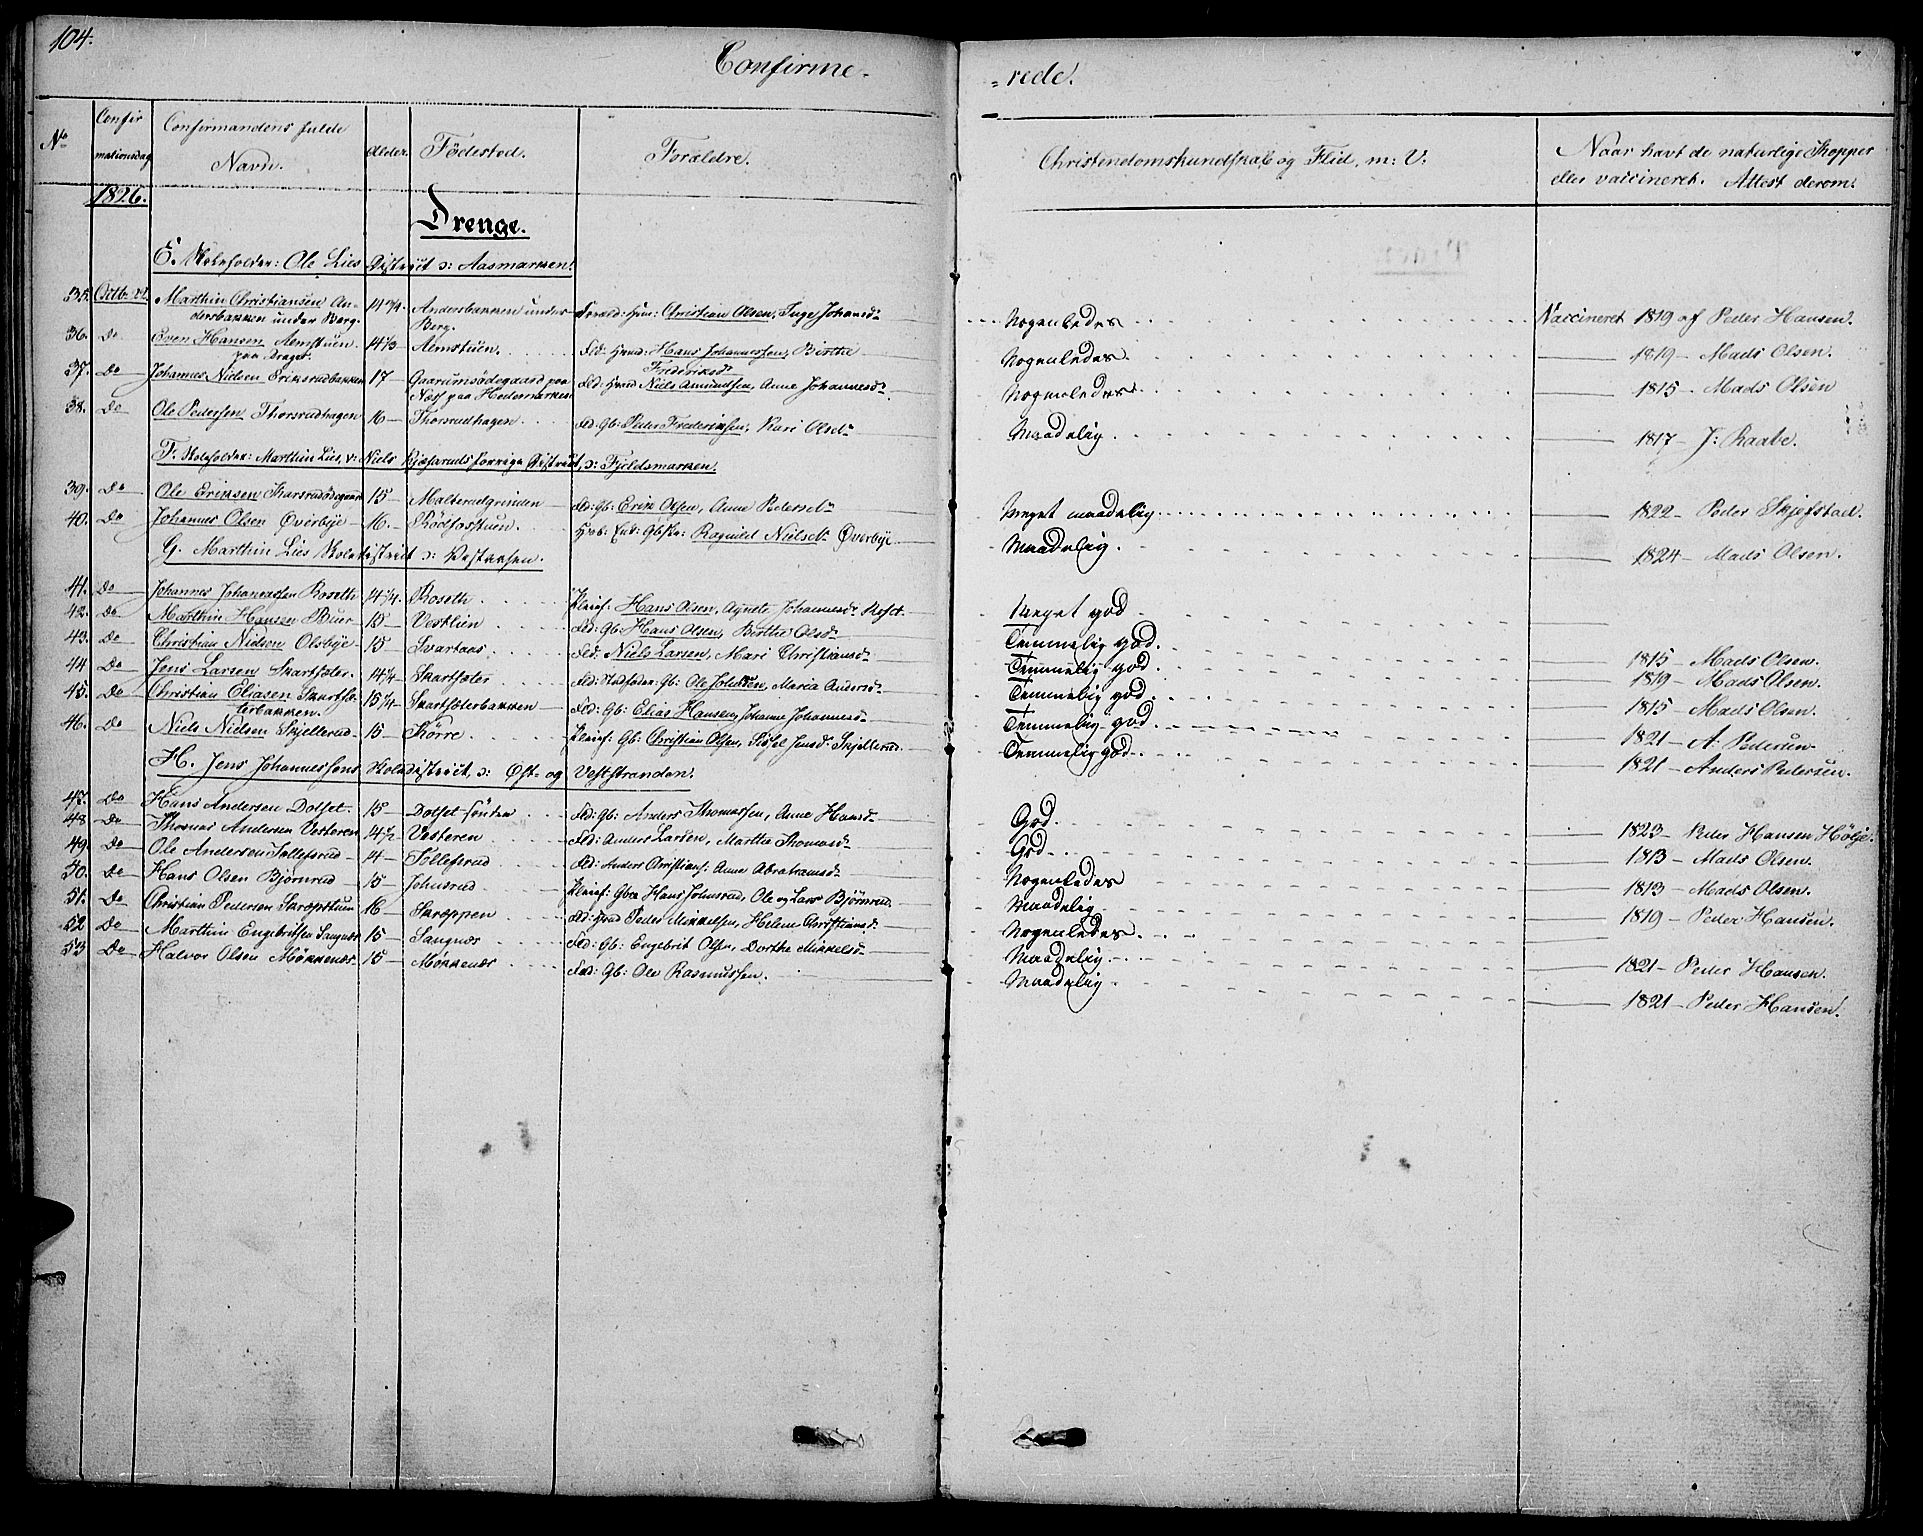 104.
Confirme- -rede.
No Confirmationsdag Confirmandens fulde Navn. Alder. Födested. Forældre. Christendomskundskab og Flid, m: V. Naar havt de naturlige Kopper eller vaccineret. Attest derom.
1826.
Drenge.
E. Skoleholder: Ole Lies District o: Aasmarken.
35. Octb. Marthin Christiansen Andersbakken under Berg. 14 3/4 Andersbakken under Berg. Christian Olsen, Inge Johansdr Nogenledes Vaccineret 1819 af Peder Hansen.
36. Do Even Hansen Aemstuen paa Draget. 14 1/3 Aemstuen. Fld: Hmd: Hans Johannessen, Birthe Frederiksdr Nogenledes. 1819 - Mads Olsen.
37. Do Johannes Nielsen Eriksrudbakken 17 - Gaarumsödegaard paa Næs paa Hedemarken Fld: Hmd Niels Amundsen, Anne Johannesdr Nogenledes 1815 - Mads Olsen
38. Do Ole Pedersen Thorsrudhagen 16 - Thorsrudhagen. Fld: Gb: Peder Frederiksen, Kari Olsdr Maadelig. 1817 - J: Raabe.
F. Skoleholder: Marthin Lies, v: Niels forrige District, o: Fjeldsmarken.
39. Do Ole Eriksen 15 - Malterudgrinden Fld: Gb: Erik Olsen, Anne Pedersdr Meget maadelig. 1822 - Peder Skjefstad.
40. Do Johannes Olsen Øverbye 16. - Rödfosstuen. Ragnild Nielsdr Øverbye. Maadelig. 1824 - Mads Olsen.
G. Marthin Lies Skoledistrict o: Vestaasen.
41. Do Johannes Johannessen Roseth 14 1/4. Roseth. Pleief: Hans Olsen, Agnete Johannesdr Roset. Meget god
42. Do Marthin Hansen Buer 15 - Vestlien Fld: Gb: Hans Olsen, Birthe Olsdr Temmelig god.
43. Do Christian Nielsen Olsbye 15 - Svartaas Fld: Niels Larsen, Mari Christiansdr Temmelig god. 1815 - Mads Olsen.
44 Do Jens Larsen Skartsæter. 14 1/4 Skartsæter Fld: Stedfader: Gb: Ole Johnsen, Maria Andersdr Temmelig god. 1819 - Mads Olsen.
45. Do Christian Eliasen Skartsæterbakken. 15 1/4 - Skartsæterbakken Fld: Gb: Elias Hansen, Johanne Johannesdr Temmelig god. 1815 - Mads Olsen.
46. Do Niels Nielsen Skjellerud 15 - Körre. Pleief: Gb: Christian Olsen, Sissel Jensdr Skjellerud. Temmelig god. 1821 - A: Pedersen
H. Jens Johannessens Skoledistrict, o: Øst- og Veststranden. 1821 - Anders Pedersen.
47. Do Hans Andersen Dotset. 15 - Dotset sönden Fld: Gb: Anders Thomassen, Anne Hansdr God. 1823 - Peder Hansen Hölje.
48 Do Thomas Andersen Vesteren 14 1/2 Vesteren. Fld: Anders Larsen, Marthe Thomasdr God 1813 - Mads Olsen.
49. Do Ole Andersen Sollefsrud 14 - Sollefsrud Fld: Anders Christians: Anne Abrahamsdr Nogenledes 1813 - Mads Olsen.
50. Do Hans Olsen Björnrud 15 - Johnsrud Pleief: Gbr Hans Johnsrud, Ole og Lars Björnrud. Maadelig. 1819 - Peder Hansen.
51. Do Christian Pedersen Skræpstuen 16 - Skræppen Fld: Hmd Peder Mikkelsen, Helene Christiansdr Nogenledes.
52 Do Marthin Engebritsen Sangnæs 15 - Sangnæs Fld: Gb: Engebrit Olsen, Dorthe Mikkelsdr Maadelig. 1821 - Peder Hansen.
53 Do Halvor Olsen Mökkenæs 15 - Mökkenæs Fld: Gb: Ole Rasmussen. Maadelig 1821 - Peder Hansen.